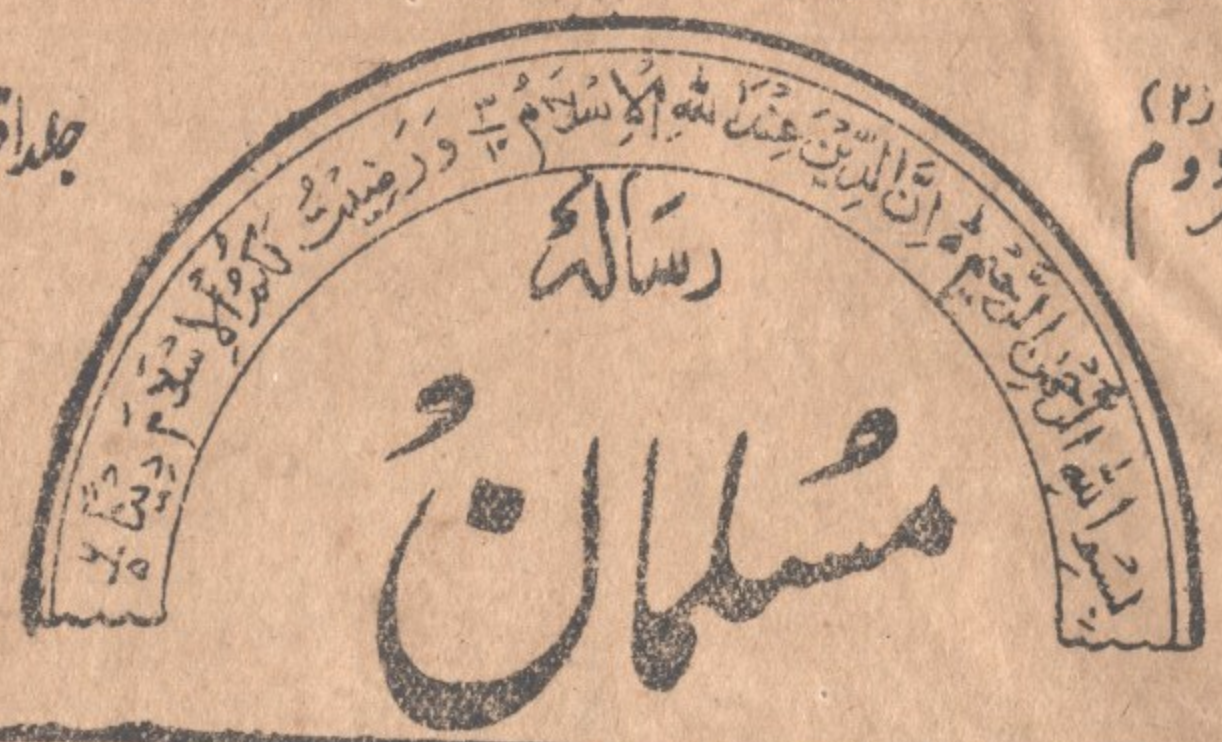 (۲)
دوم
بِسْمِ اللهِ الرَّحْمٰنِ الرَّحِيْمِ ؕ اِنَّ الدِّيْنَ عِنْدَ اللهِ الْاِسْلَامُ ۳/۱۰ وَرَضِيْتُ لَكُمُ الْاِسْلَامَ دِيْنًا
رسالۂ
مُسلمانُ